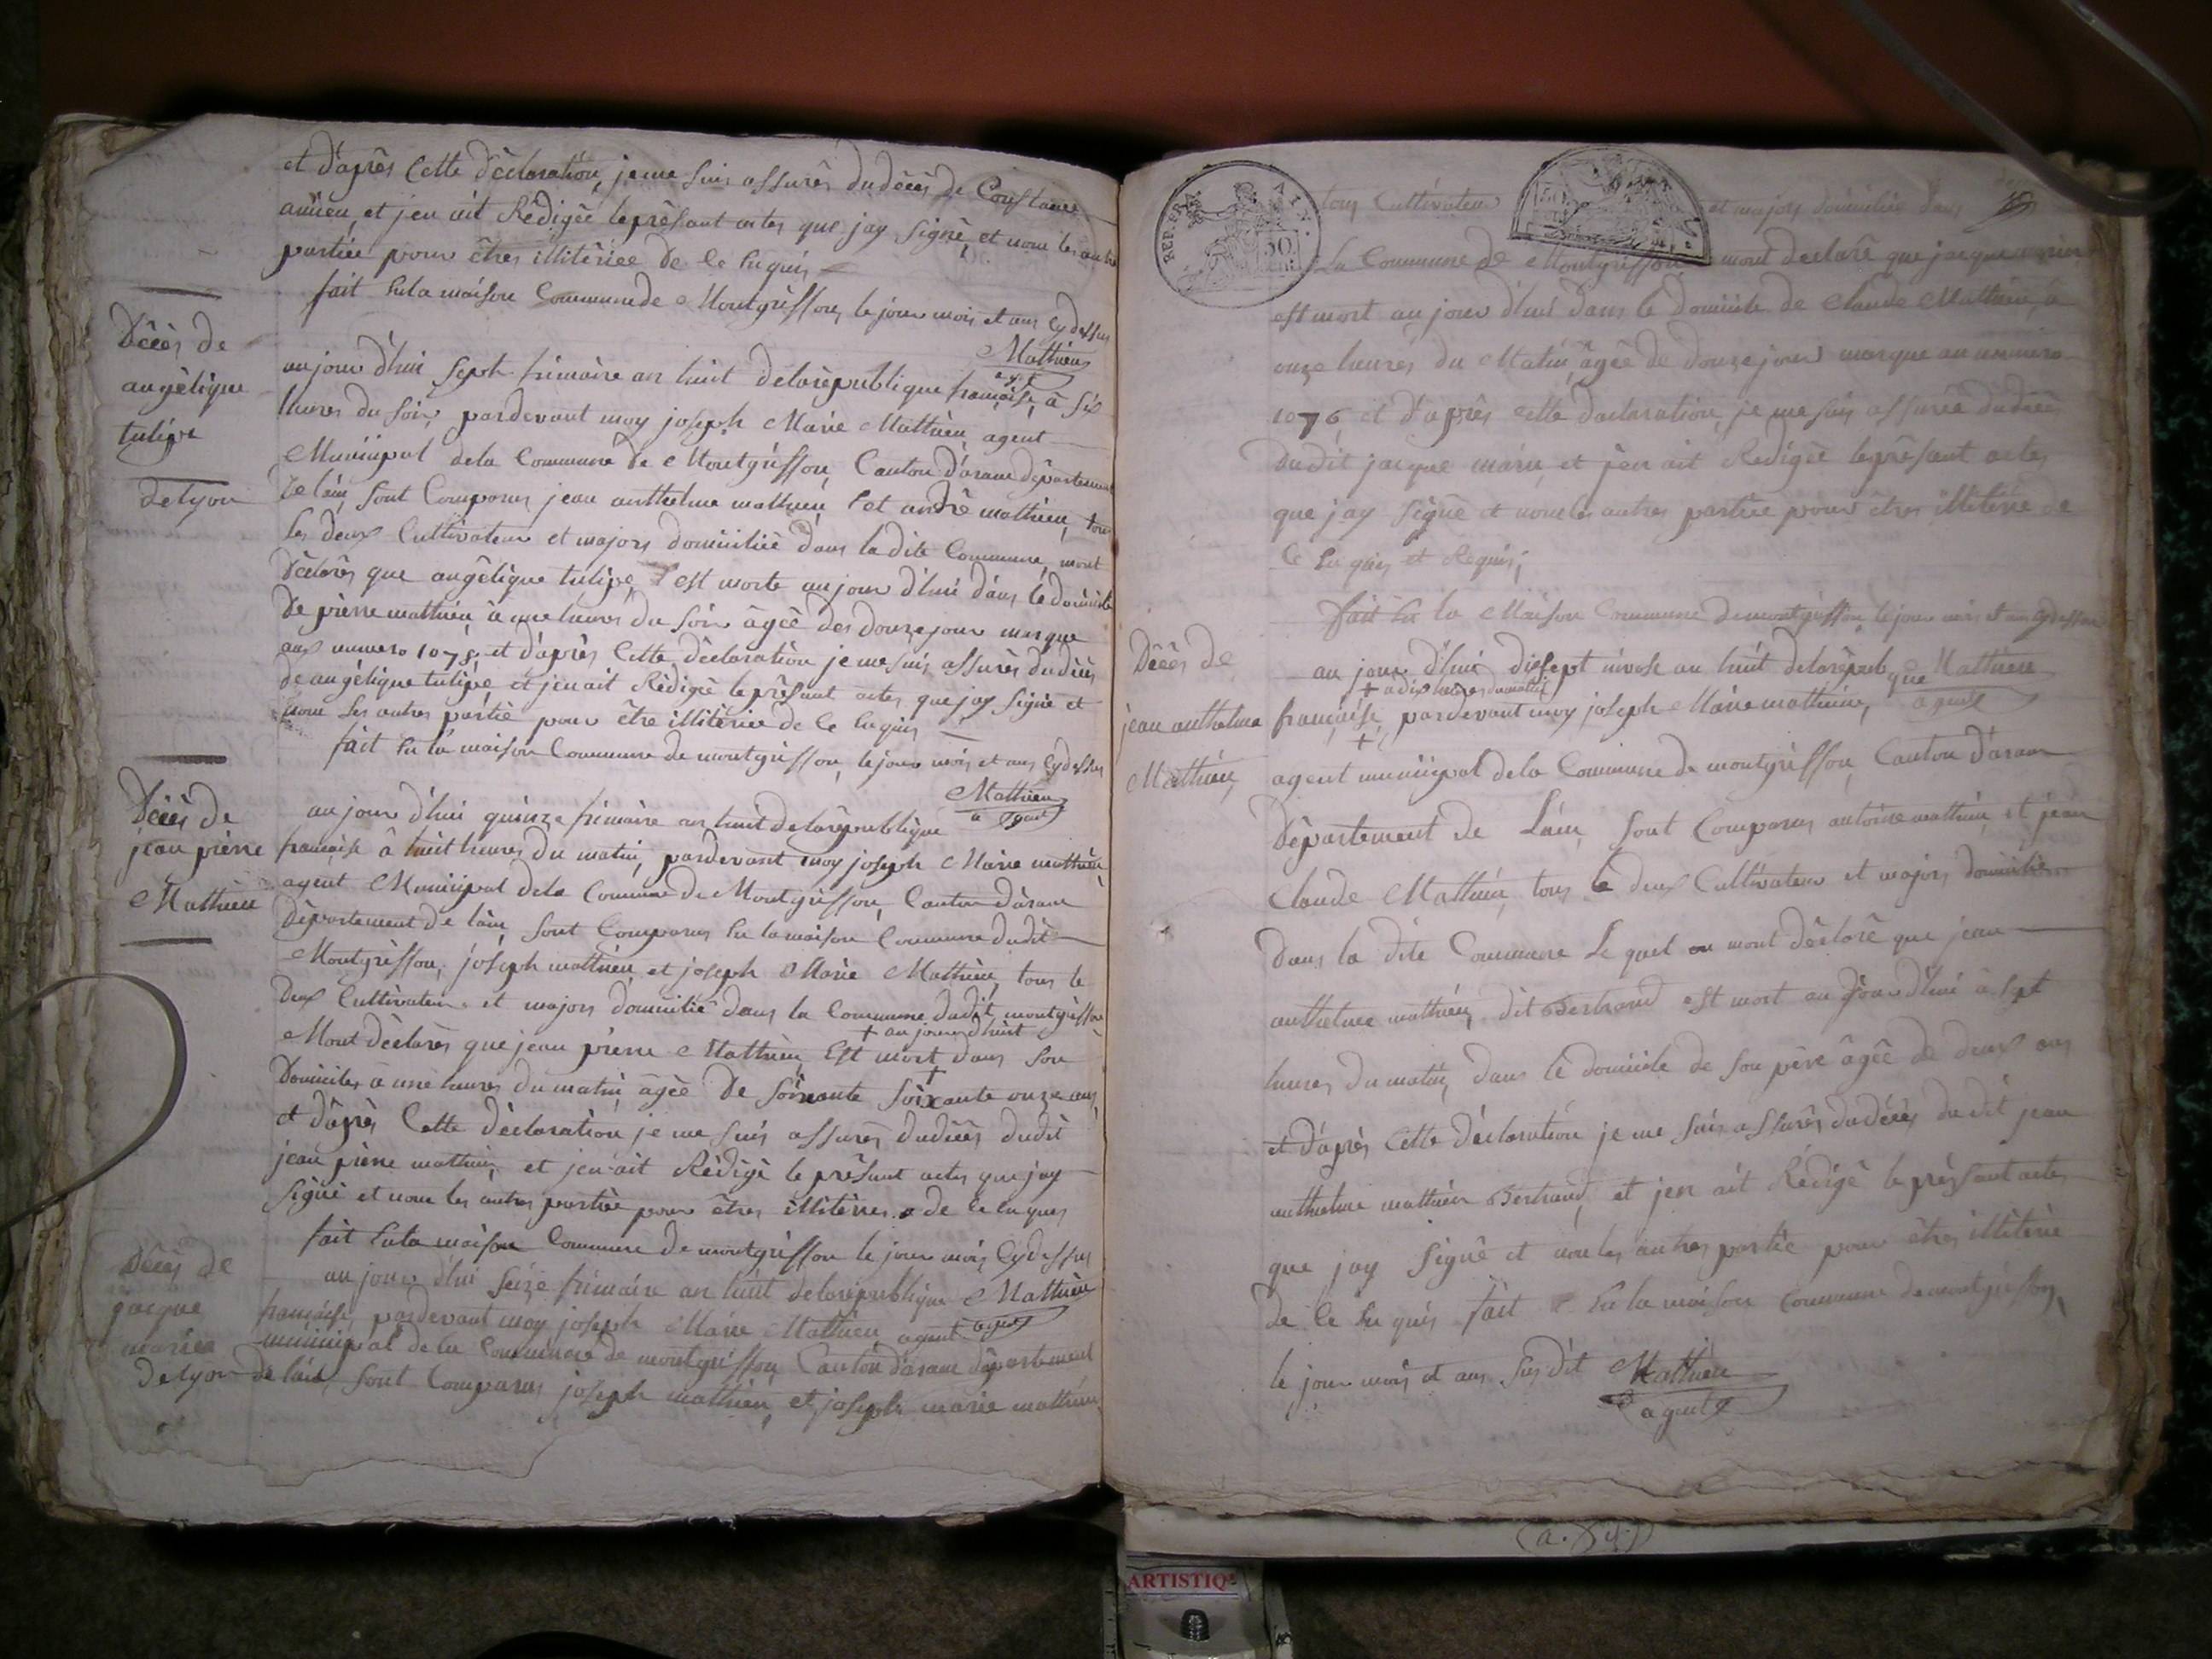 et d'après Cette dèclaration, je me suis assurès du dècès de Constance
anieu, et jen ait Rèdigèe le prèsant actes que jay Signè, et nom les autre
partièe pour êtres illitèrèe de ce Enquis
fait En la maison Commune de Montgriffon, le jour mois et ans Cy dessus
Mathieu
agt
Dècès de
angèlique
tulipe
de lyon
aujour d'hui sept frimaire an huit de la rèpublique française, à six
heures du soir, pardevant moy joseph Marie Mathieu, agent
Municipal de la Commune de Montgriffon, Canton d'arane dèpartement
de lain, sont Comparus jean anthelme mathieu, et andrè mathieu, tous
les deux Cultivateur et majors domiciliè dans la dite Commune, mont
dèclarès que angèlique tulipe, est morte aujour d'hui dans le domicile
de pierre mathieu à une heures du soir âgèe des douze jour marque
aux numero 1078, et d'après Cette dèclaration je me suis assurès du dècès
de angèlique tulipe, et jen ait Rèdigèe le prèsant actes que jay Signè et
nom les autres partiè pour être illitèrèe de ce Enquis
fait En la maison Commune de montgriffon, le jour mois et ans Cy dessus
Mathieu
agent
Dècès de
jean pierre
Mathieu
aujour d'hui quinze frimaire an huit de la rèpublique
française à huit heures du matin, pardevant moy joseph Marie mathieu
agent Municipal de la Commune de Montgriffon, Canton d'arane
Dèpartement de lain, sont Comparus En la maison Commune dudit
Montgriffon, joseph mathieu, et joseph Marie Mathieu, tous le
deux Cultivateur et majors domiciliè dans la Commune dudit montgriffon
+ au jourdhuit
Mont dèclarès que jean pierre Mathieu, Est mort + dans son
Domiciles à une heures du matin âgèe de soixante soixante onze ans
et d'après Cette dèclaration je me suis assurès du dècès dudit
jean pierre mathieu, et jen ait Rèdigè le prèsant actes que jay
Signè et nom les autres partièe pour êtres illitères de ce Enques
fait En la maison Commune de montgriffon le jour mois Cy dessus
Mathieu
agent
Dècès de
jacque
marien
de lyon
aujour d'hui seize frimaire an huit de la rèpublique
française, pardevant moy joseph Marie Mathieu agent
municipal de la Commune de montgriffon Canton d'arane dèpartement
de lain, sont Comparus joseph mathieu, et joseph marie mathieu,
REP. FRA.
AIN
50
tous Cultivateur et majors domiciliè dans
La Commune de Montgriffon mont declarè que jacque marien
est mort au jour d'hui dans le domicile de Claude Mathieu, à
onze heures du Matin, âgèe de douze jour marque au numèro
1076 et d'après cette dèclaration, je me suis assurèe du dècè
Dudit jacque marien, et jen ait Rèdigèe le prèsant actes
que jay Signè et nom les autres partièe pour êtres illitèrè de
Ce Enquis et Requis,
fait En la Maison Commune de montgriffon, le jour mois et an Cy dessus
Mathieu
agent
Dècès de
jean anthelme
Mathieu,
au jour d'hui dissept nivose an huit de la rèpublique
+ a dix heures du matin
française, + pardevant moy joseph Marie mathieu,
agent municipal de la Commune de montgriffon, Canton d'arane
Dèpartement de Lain, sont Comparus antoine mathieu, et jean
Claude Mathieu, tous le deux Cultivateur et majors domiciliè
Dans la dite Commune Le quel on mont dèclarè que jean
anthelme mathieu, dit Bertrand est mort au jour d'hui à sept
heures du matin, dans le domicile de son père âgèe de deux ans
et d'après Cette dèclaration je me suis assurès du dècès dudit jean
anthelme mathieu Bertrand, et jen ait Rèdigè le prèsant actes
que jay Signè et nom les autres partie pour êtres illitèrè
de Ce Enquis fait En la maison Commune de montgriffon,
le jour mois et ans Sus dit
Mathieu
agent
ARTISTIQ